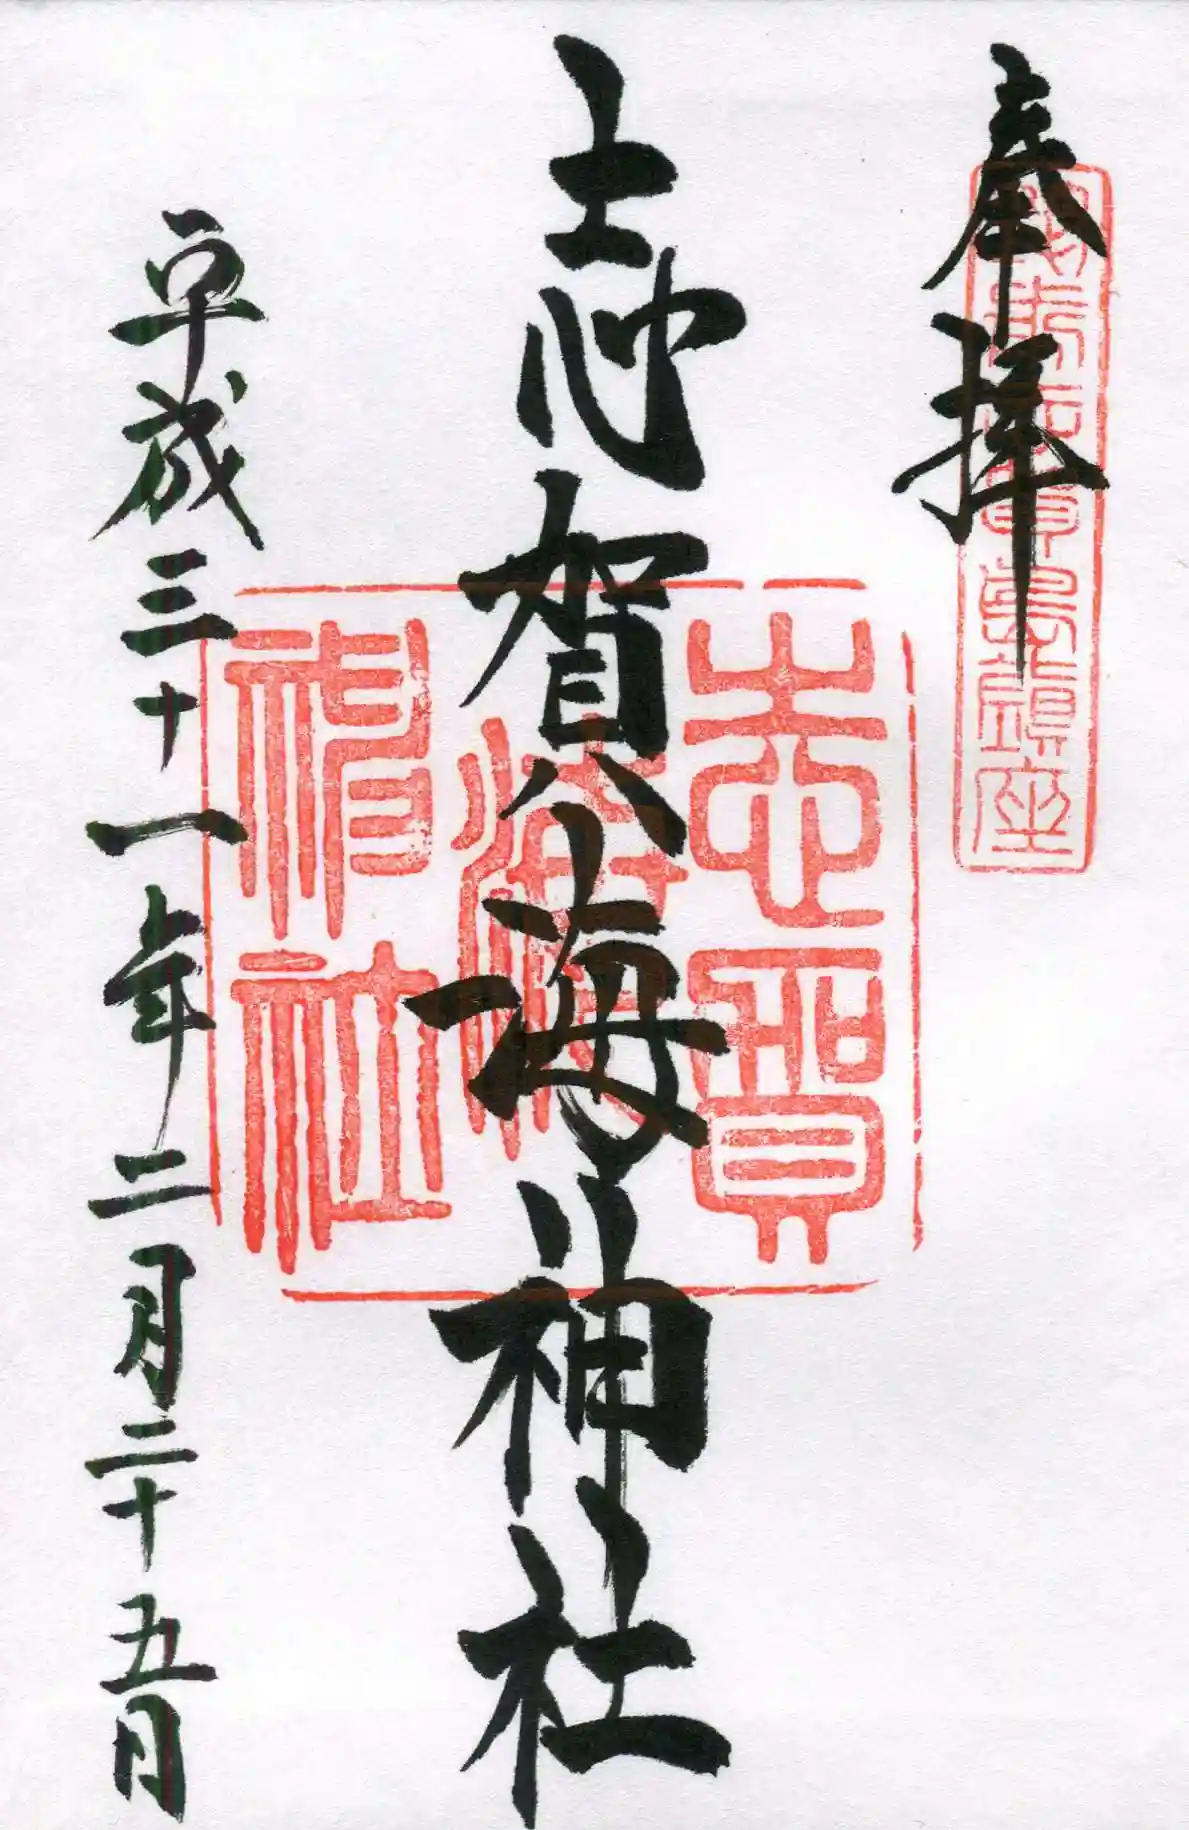 奉拝
志賀海神社
志賀
海
神社
平成三十一年二月二十五日